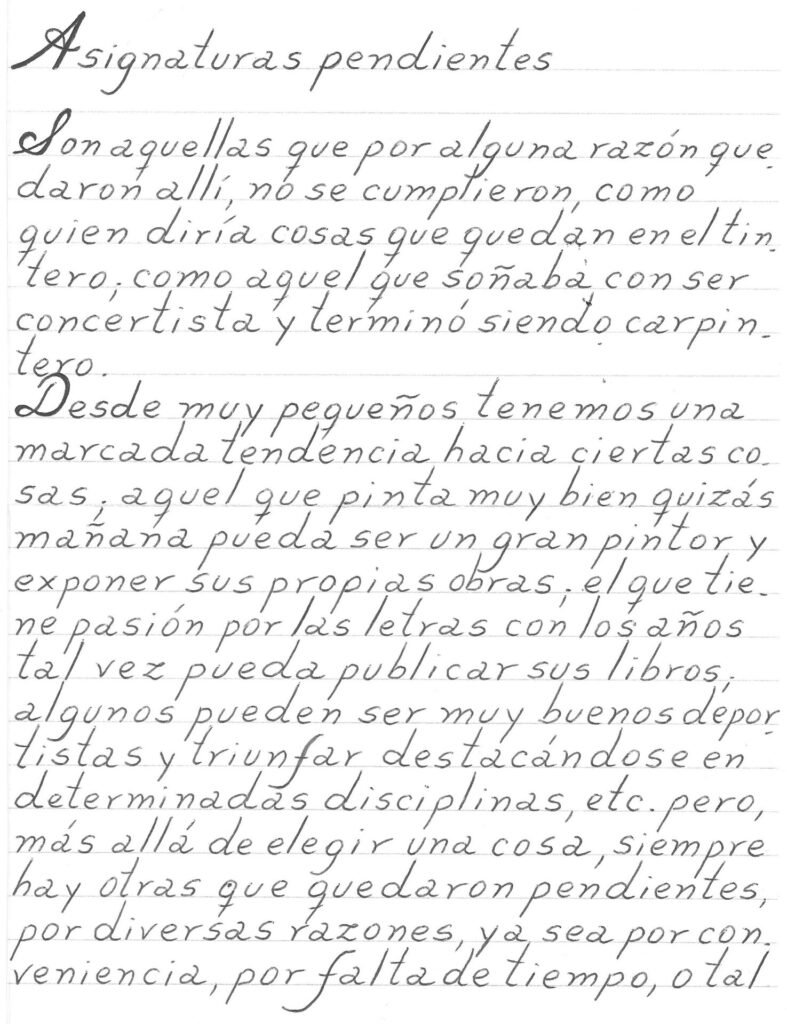 Asignaturas pendientes
Son aquellas que por alguna razón que-
daron allí, no se cumplieron, como
quien diría cosas que quedan en el tin-
tero; como aquel que soñaba con ser
concertista y terminó siendo carpin-
tero.
Desde muy pequeños tenemos una
marcada tendencia hacia ciertas co-
sas; aquel que pinta muy bien quizás
mañana pueda ser un gran pintor y
exponer sus propias obras; el que tie-
ne pasión por las letras con los años
tal vez pueda publicar sus libros;
algunos pueden ser muy buenos depor-
tistas y triunfar destacándose en
determinadas disciplinas, etc. pero,
más allá de elegir una cosa, siempre
hay otras que quedaron pendientes,
por diversas razones, ya sea por con-
veniencia, por falta de tiempo, o tal